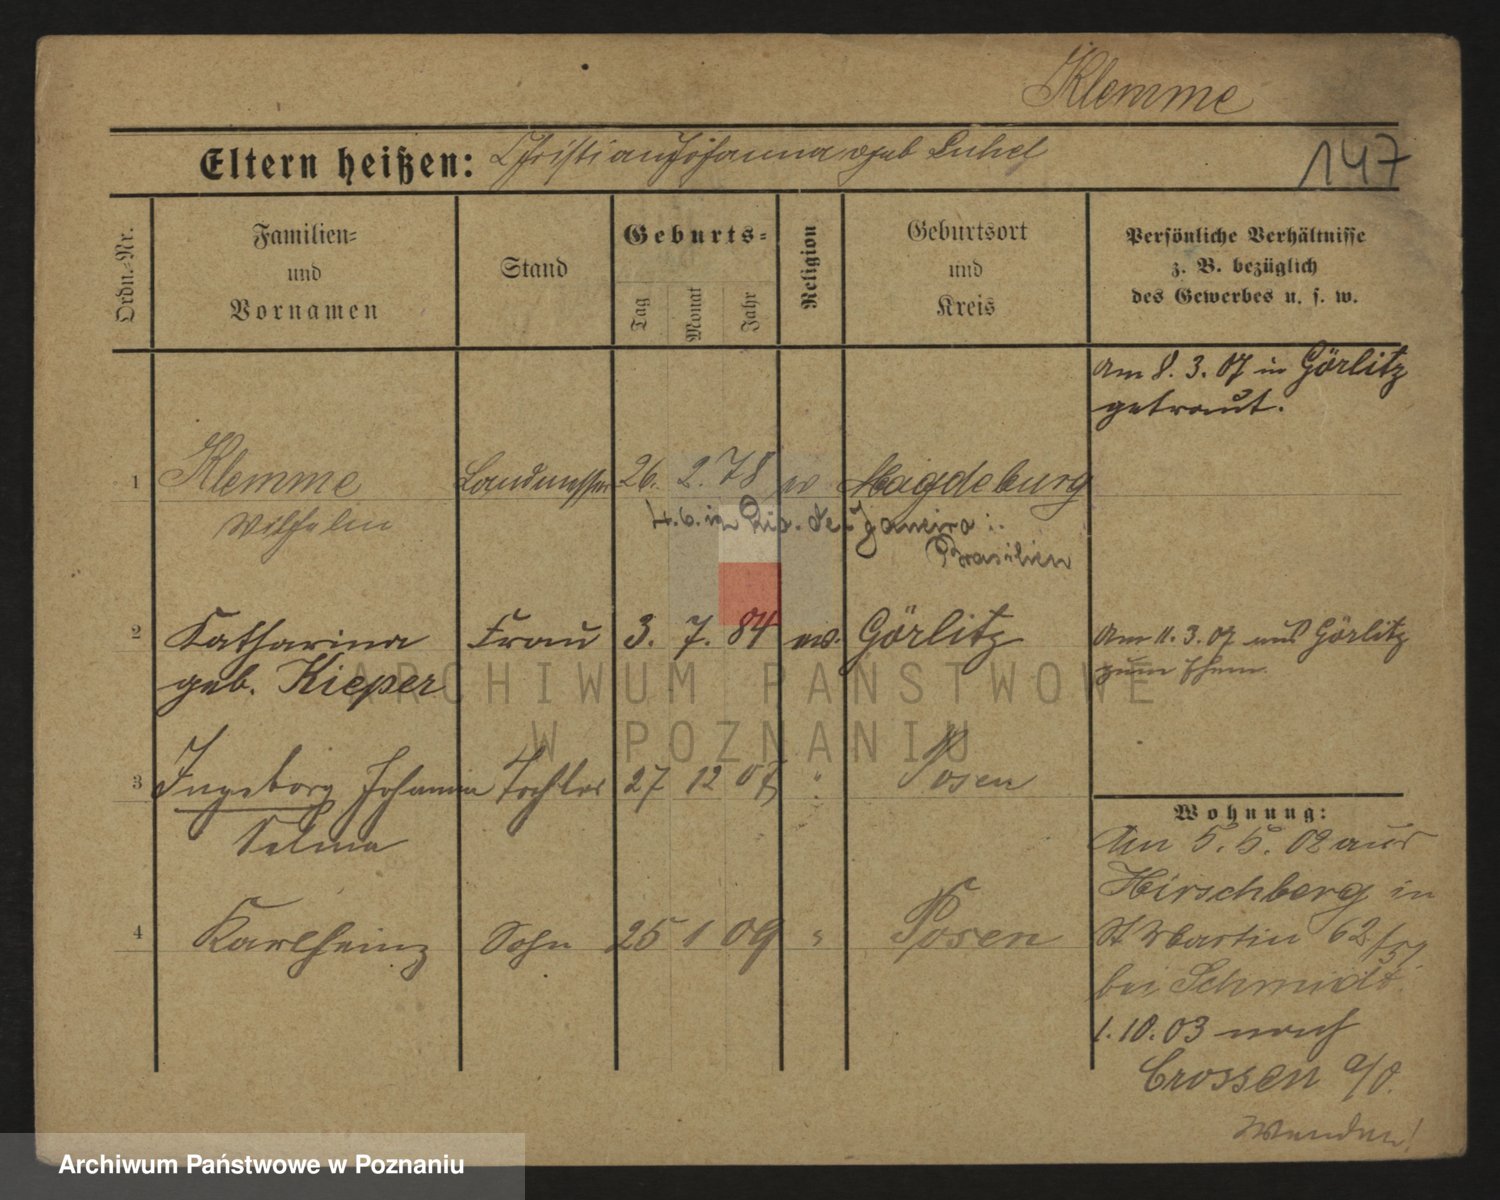 Klemme
Eltern heißen: Christian Johanna geb Luhel
147
Ordn.-Nr.
Familien-
und
Vornamen
Stand
Geburts-
Tag
Monat
Jahr
Religion
Geburtsort
und
Kreis
Persönliche Verhältnisse
z. B. bezüglich
des Gewerbes u. s. w.
am 8. 3. 07 in Görlitz
getraut.
1 Klemme Landmesser 26. 2. 78 ev Magdeburg
Wilhelm
4. 6. in Rio. de Janeiro i.
Brasilien
2 Katharina Frau 3. 7. 84 ev. Görlitz
geb. Kieper
am 11. 3. 07 aus Görlitz
zum Ehem.
3 Ingeborg Johanna Tochter 27 12 07 " Posen
Selma
4 Karlheinz Sohn 25 1 09 " Posen
Wohnung:
Am 5. 5. 02 aus
Hirschberg in
St Martin 62/51
bei Schmidt.
1. 10. 03 nach
Crossen a/O.
Wenden!
ARCHIWUM PAŃSTWOWE
W POZNANIU
Archiwum Państwowe w Poznaniu